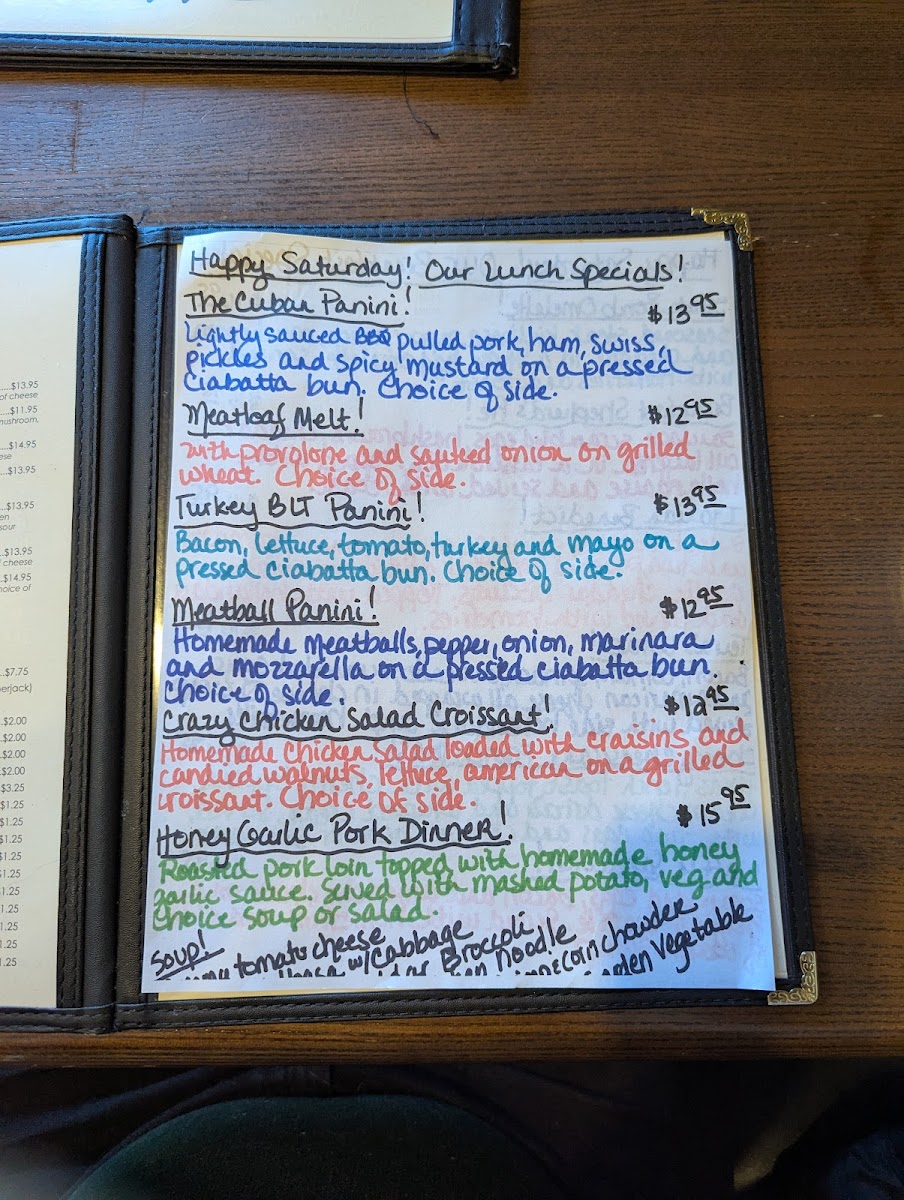 ...$13.95
of cheese
...$11.95
mushroom,
...$14.95
ese
...$13.95
...$13.95
en
sour
...$13.95
cheese
..$14.95
hoice of
..$7.75
erjack)
.$2.00
.$2.00
.$2.00
.$2.00
$3.25
$1.25
$1.25
$1.25
$1.25
1.25
1.25
1.25
1.25
1.25
Happy Saturday! Our Lunch Specials!
The Cuban Panini! $13 95
Lightly sauced BBQ pulled pork, ham, swiss,
pickles and spicy mustard on a pressed
ciabatta bun. Choice of side.
Meatloaf Melt! $12 95
with provolone and sauteed onion on grilled
wheat. Choice of side.
Turkey BLT Panini! $13 95
Bacon, lettuce, tomato, turkey and mayo on a
pressed ciabatta bun. Choice of side.
Meatball Panini! $12 95
Homemade meatballs, pepper, onion, marinara
and mozzarella on a pressed ciabatta bun.
Choice of side.
Crazy Chicken Salad Croissant! $12 95
Homemade chicken salad loaded with craisins and
candied walnuts, lettuce, american on a grilled
croissant. Choice of side.
Honey Garlic Pork Dinner! $15 95
Roasted pork loin topped with homemade honey
garlic sauce. Served with mashed potato, veg and
choice soup or salad.
Soup!
tomato cheese
w/Cabbage
Broccoli
Noodle
corn chowder
Vegetable